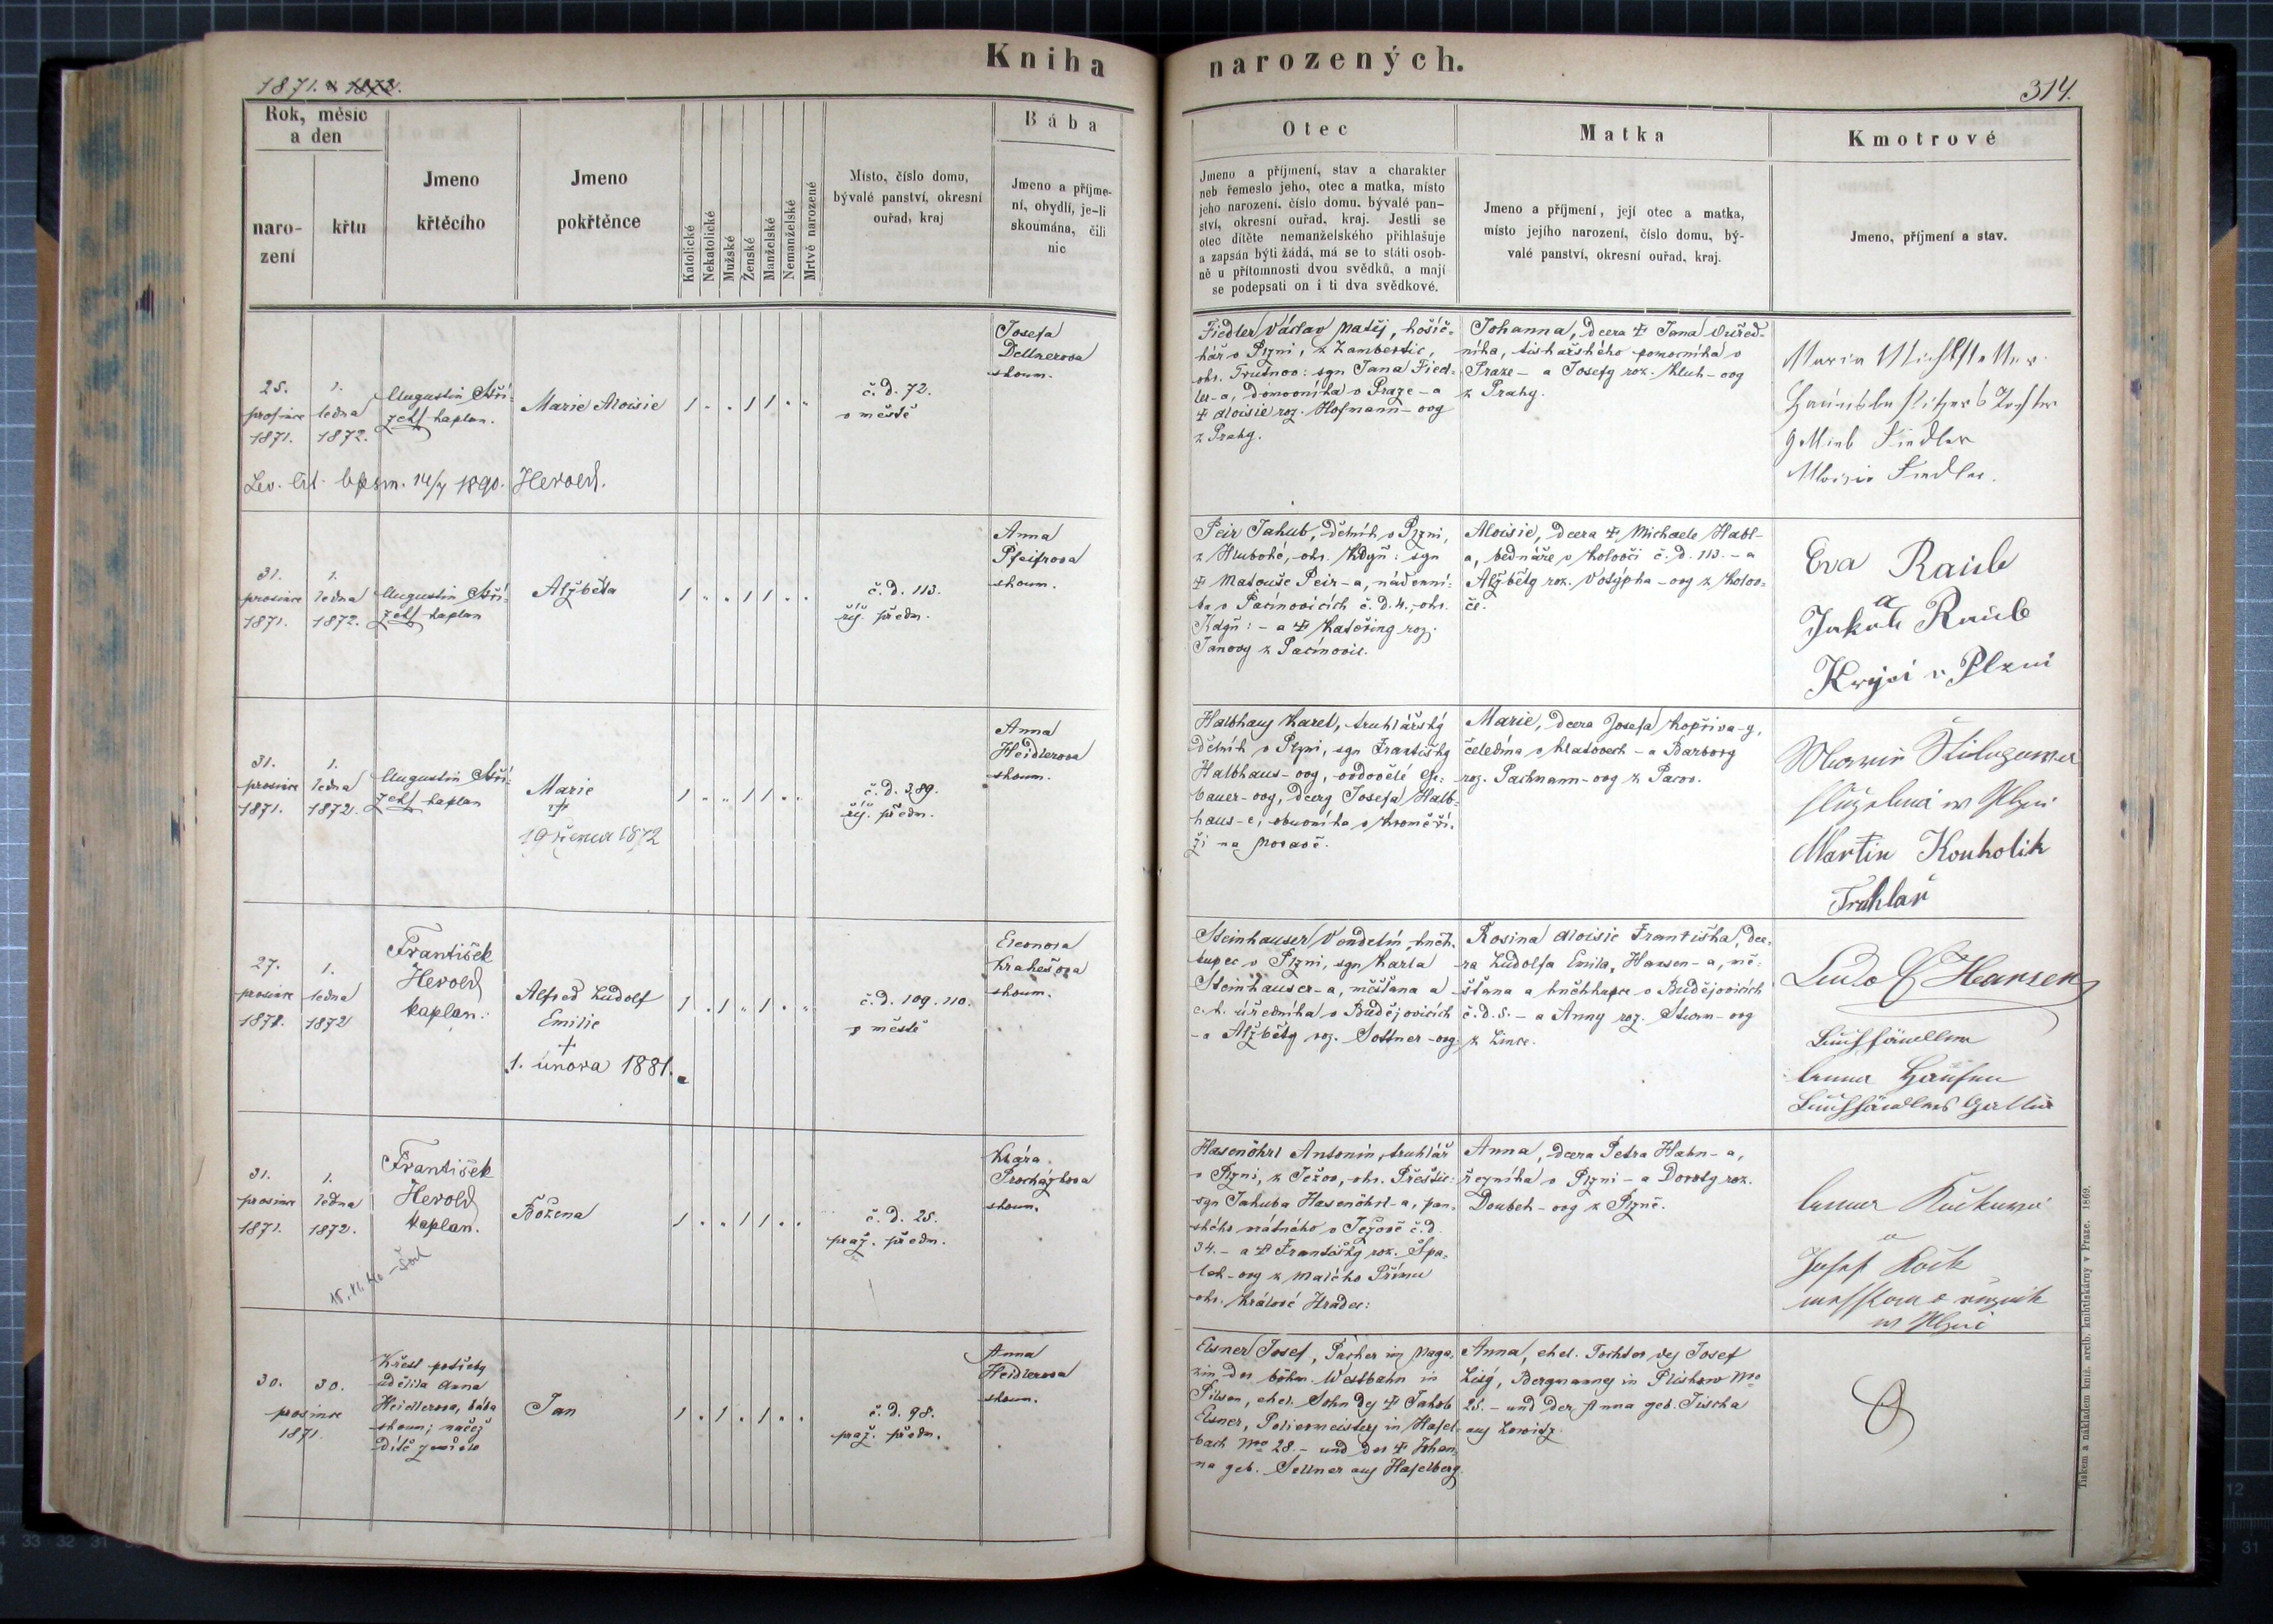 Kniha narozených.
1871. a 1872.
314.
Rok, měsíc a den
narození
křtu
Jmeno křtěcího
Jmeno pokřtěnce
Katolické
Nekatolické
Mužské
Ženské
Manželské
Nemanželské
Mrtvě narozené
Místo, číslo domu, bývalé panství, okresní ouřad, kraj
Bába
Jmeno a příjme-
ní, obydlí, je-li
skoumána, čili
nic
Otec
Jmeno a příjmení, stav a charakter
neb řemeslo jeho, otec a matka, místo
jeho narození, číslo domu, bývalé pan-
ství, okresní ouřad, kraj. Jestli se
otec dítěte nemanželského přihlašuje
a zapsán býti žádá, má se to státi osob-
ně u přítomnosti dvou svědků, a mají
se podepsati on i ti dva svědkové.
Matka
Jmeno a příjmení, její otec a matka,
místo jejího narození, číslo domu, bý-
valé panství, okresní ouřad, kraj.
Kmotrové
Jmeno, příjmení a stav.
25.
prosince
1871.
1.
ledna
1872.
Augustin
kaplan.
Marie Aloisie
1 " " 1 1 " "
č. d. 72.
v městě
Josefa
Dellnerova
skoum.
Fiedler Václav Matěj,
v Plzni, z Žambertic,
okr. Trutnov: syn Jana Fied-
ler-a, domovníka v Praze - a
† Aloisie roz. Hofmann-ovy
z Prahy.
Johanna, dcera † Jana
níka, tiskařského pomocníka v
Praze - a Josefy roz. Kluh-ovy
z Prahy.
Maria
Gottlieb Fiedler
Aloisia Fiedler.
1890. Herold.
31.
prosince
1871.
1.
ledna
1872.
Augustin
kaplan
Alžběta
1 " " 1 1 " "
č. d. 113.
říš. předm.
Anna
Pfeifrova
skoum.
Peir Jakub, dělník v Plzni,
z Hluboké, okr. Kdyň: syn
† Matouše Peir-a, nádenní-
ka v Pacinovicích č. d. 4., okr.
Kdyň: - a † Kateřiny roz.
Janovy z Pacinovic.
Aloisie, dcera † Michaele Habl-
a, bednáře v Kolovči č. d. 113. - a
Alžběty roz. Votýpka-ovy z Kolov-
če.
Eva Raub
a
Jakub Raub
Krejčí v Plzni
31.
prosince
1871.
1.
ledna
1872.
Augustin
kaplan
Marie
†
19 1872
1 " " 1 1 " "
č. d. 389.
říš. předm.
Anna
Heidlerova
skoum.
Halbhaus Karel, truhlářský
dělník v Plzni, syn Františky
Halbhaus-ovy, ovdovělé
bauer-ovy, dcery Josefa Halb-
haus-e, obuvníka v Kroměří-
ži na Moravě.
Marie, dcera Josefa Kopřiva-y,
čeledína v Klatovech - a Barbory
roz. Pachmann-ovy z Pacov.
Martin Kouholik
Truhlař
27.
prosince
1871.
1.
ledna
1872
František
Herold
kaplan.
Alfred Ludolf
Emilie
†
1. února 1881.
1 " 1 " 1 " "
č. d. 109. 110.
v městě
Eleonora
Krakešova
skoum.
Steinhauser Vendelín, kněh-
kupec v Plzni, syn Karla
Steinhauser-a, měšťana a
c. k. úředníka v Budějovicích
- a Alžběty roz. Sottner-ovy.
Rosina Aloisie Františka, dce-
ra Ludolfa Emila, Hansen-a, mě-
šťana a kněhkupce v Budějovicích
č. d. 5. - a Anny roz. Sturm-ovy
z Lince.
Ludolf Hansen
Buchhändler
Anna Hansen
Buchhändlers Gattin
31.
prosince
1871.
1.
ledna
1872.
František
Herold
kaplan.
Božena
1 " " 1 1 " "
č. d. 25.
praž. předm.
Klára
Procházkova
skoum.
Hasenöhrl Antonín, truhlář
v Plzni, z Ježov, okr. Přeštic:
syn Jakuba Hasenöhrl-a, pan-
ského vrátného v Ježově č. d.
34. - a † Františky roz. Špa-
lek-ovy z Malého
okr. Králové Hradec:
Anna, dcera Petra Hahn-a,
řezníka v Plzni - a Doroty roz.
Doubek-ovy z Plzně.
Josef
30.
30.
prosince
1871.
Křest potřeby
udělila Anna
Heidlerova, bába
skoum; načež
dítě zemřelo
Jan
1 " 1 " 1 " "
č. d. 98.
praž. předm.
Anna
Heidlerova
skoum.
Elsner Josef, Packer im Maga-
zin der böhm. Westbahn in
Pilsen, ehel. Sohn des † Jakob
Elsner, Poliermeisters in Hasel-
bach Nro 28. - und der † Johan-
na geb. Sellner aus Haselberg.
Anna, ehel. Tochter des Josef
Lisý, Bergmanns in Nro
25. - und der Anna geb. Tischa
aus
Tiskem a nákladem kníž. arcib. knihtiskárny v Praze. 1869.